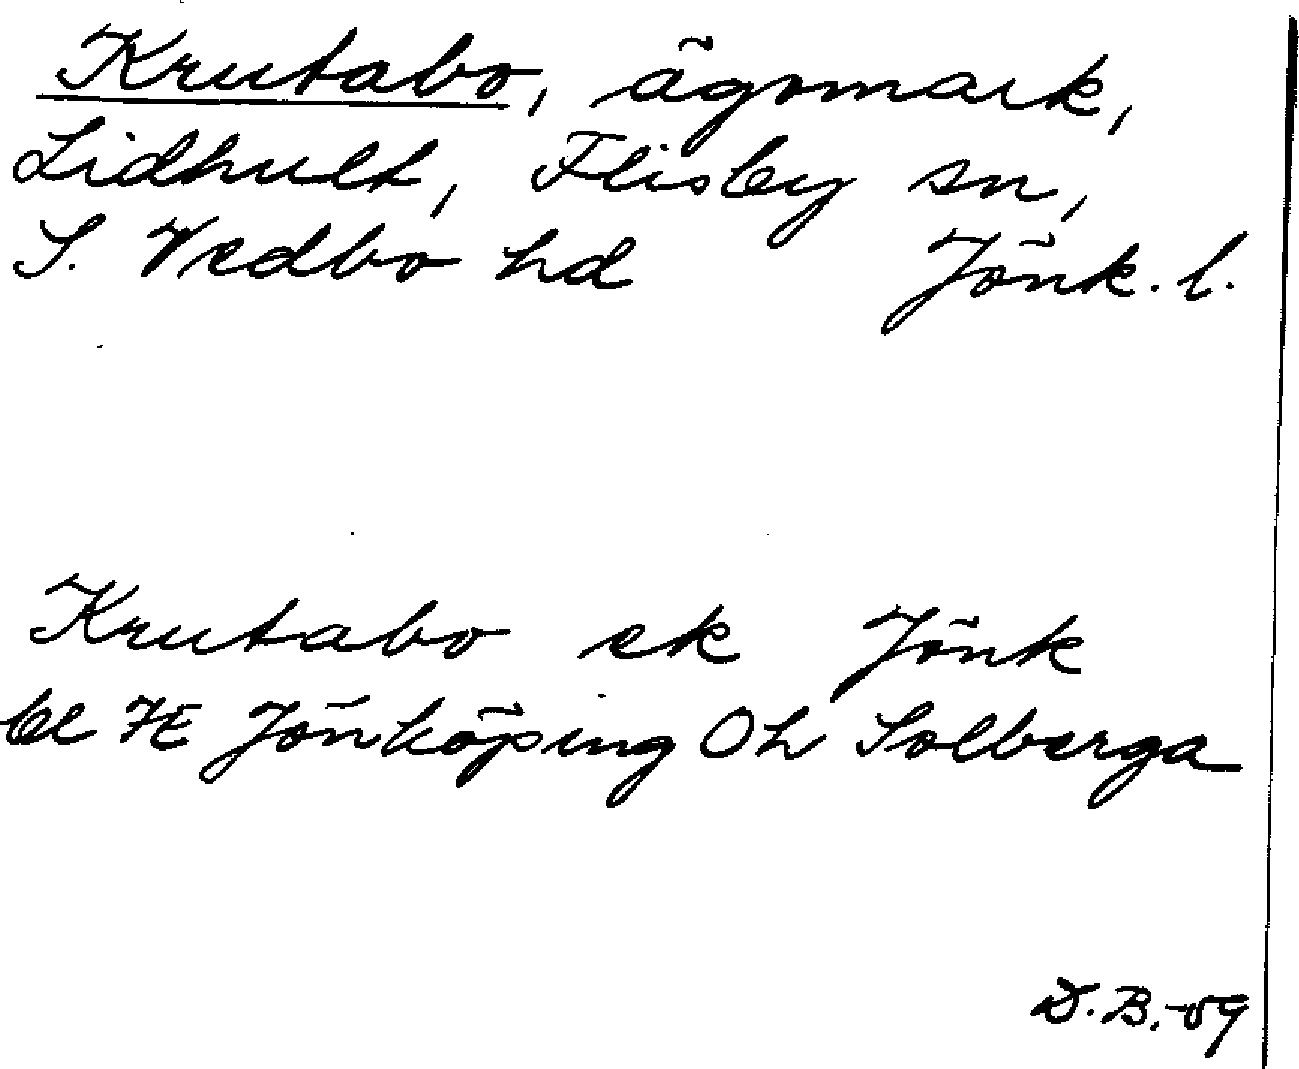 Krutabo, ägomark,
Lidhult, Flisby sn,
S. Vedbo hd Jönk. l.
Krutabo ek Jönk
bl 7E Jönköping Oh Solberga
D.B.-59